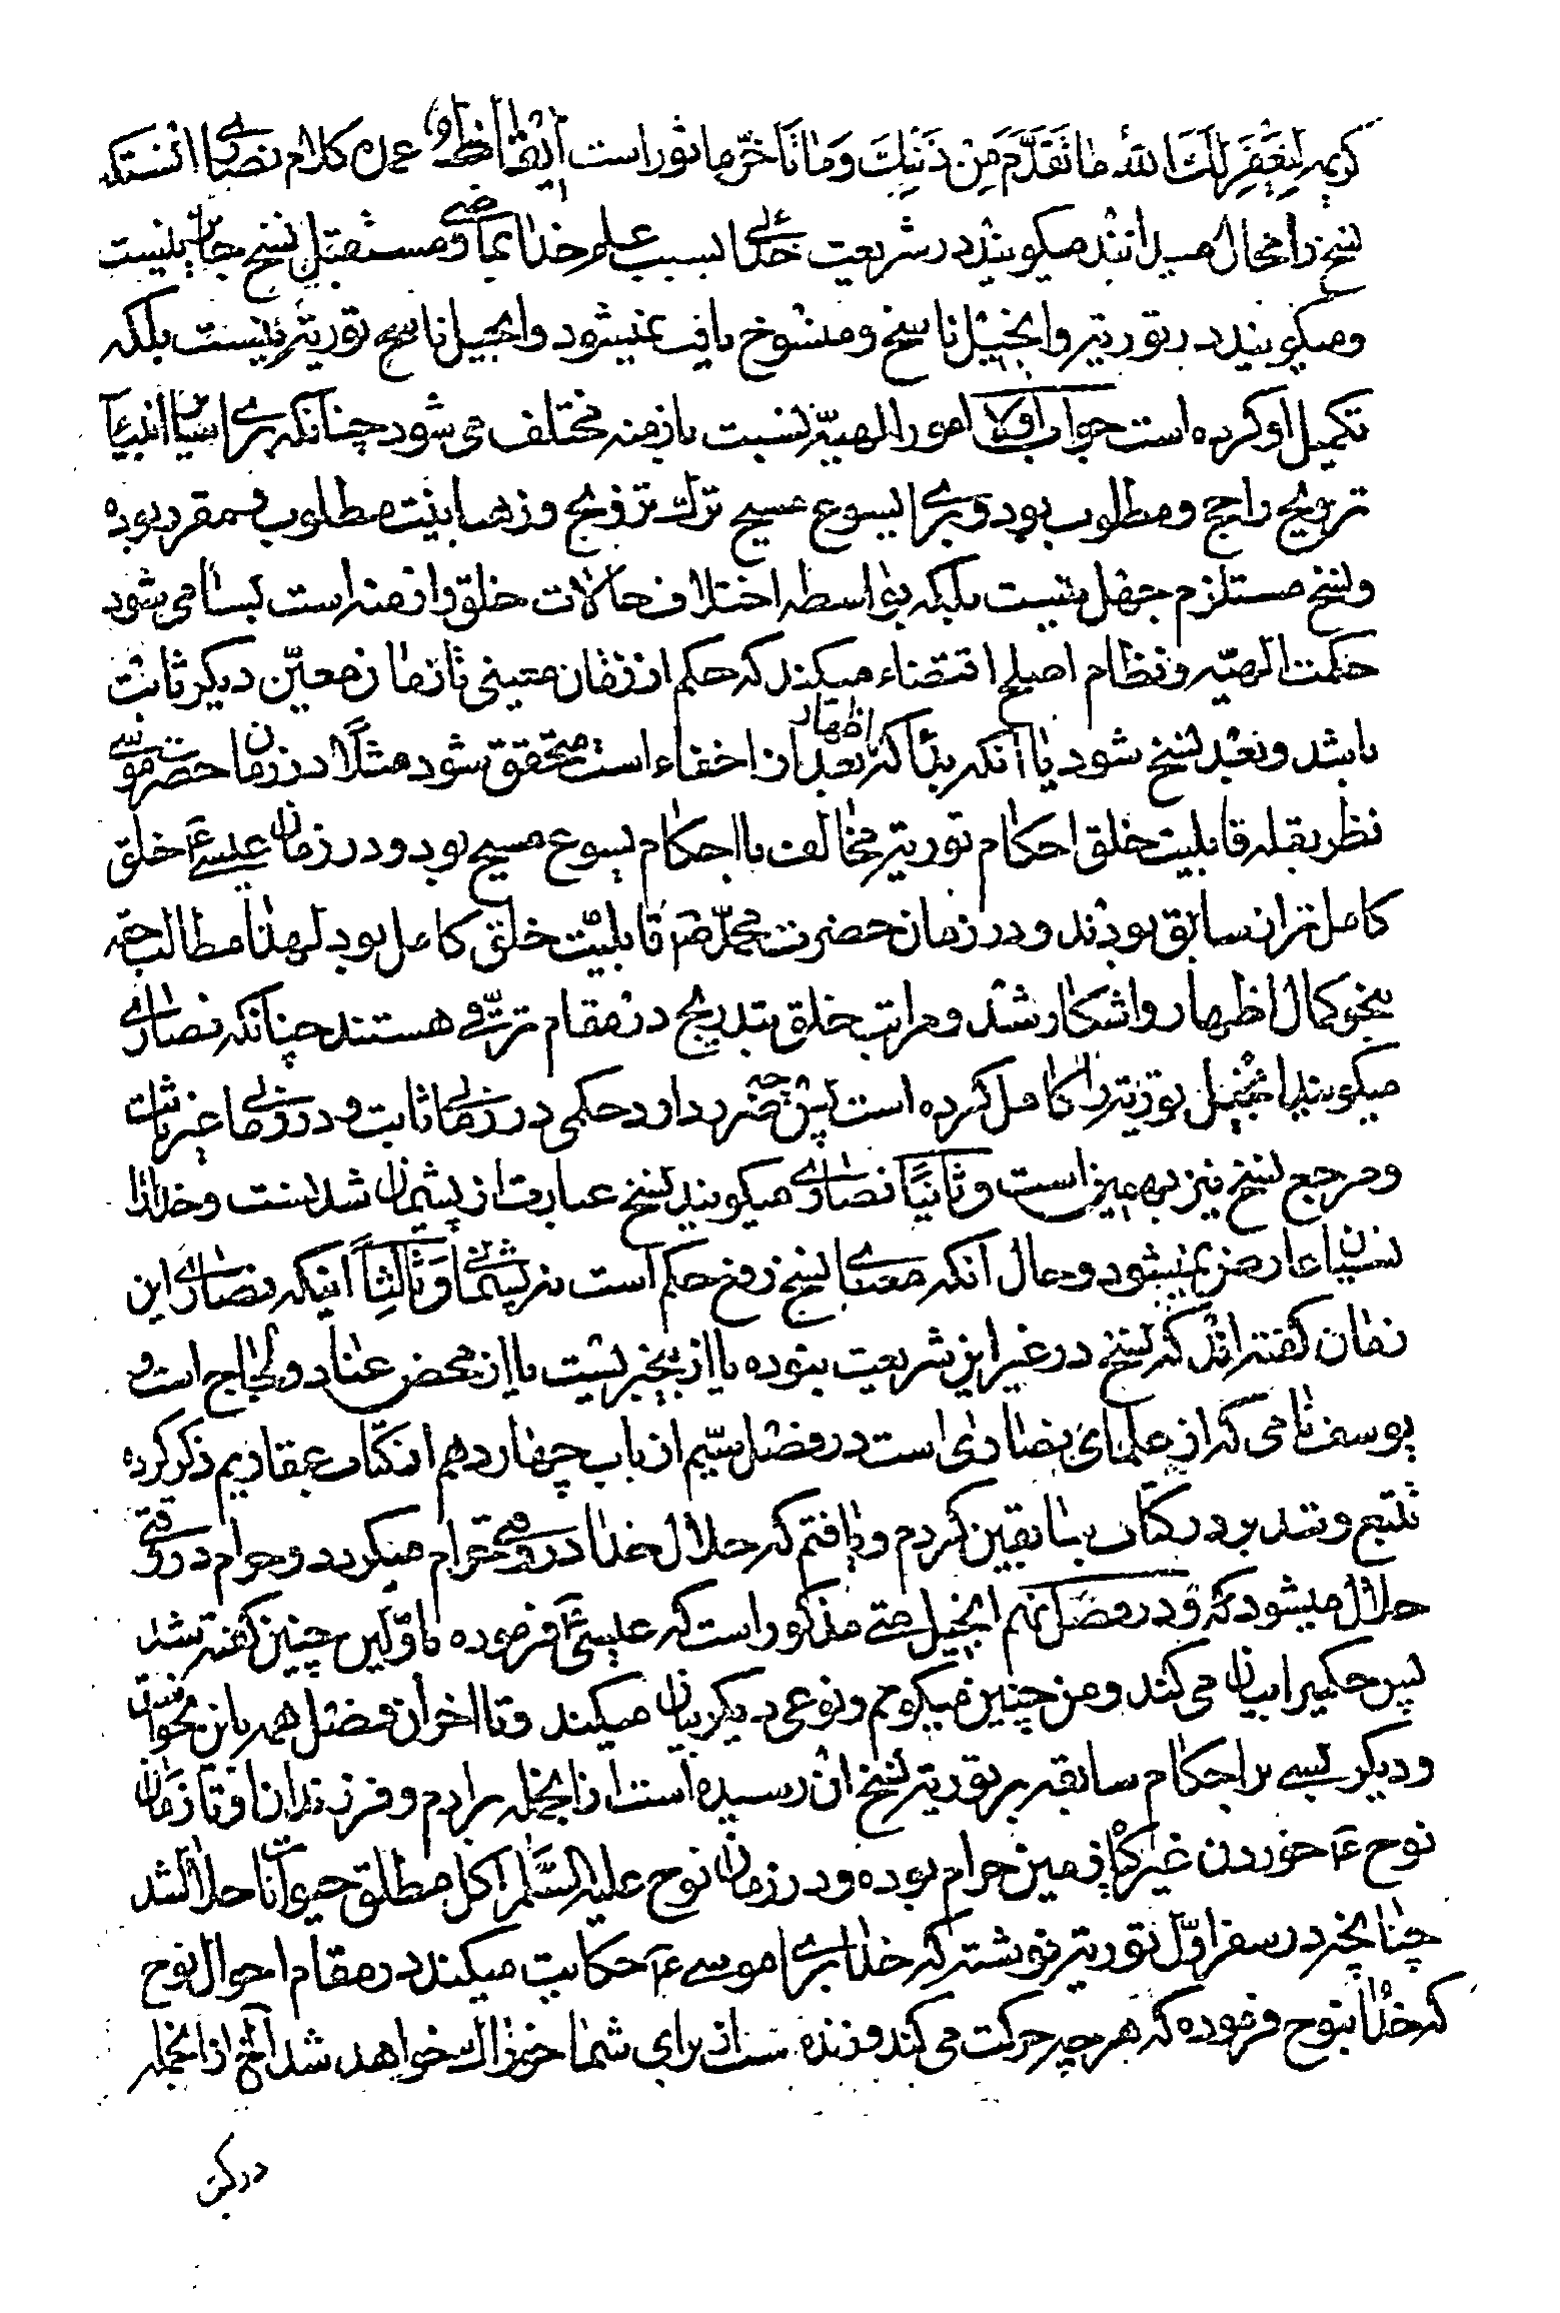 کریمه لِیَغْفِرَ لَكَ اللهُ ما تَقَدَّمَ مِنْ ذَنْبِكَ وَمٰا تَاَخَّرَ ماثور است ایقاظ عمده کلام نصاری انستکه
نسخ را محال میدانند میکویند در شریعت خدا بسبب علم خدا بماضی و مستقبل نسخ جایز نیست
ومیکویند در توریة وانجیل ناسخ و منسوخ یافت نمیشود وانجیل ناسخ توریة نیست بلکه
تکمیل او کرده است جواب اولا امور الهیّه نسبت بازمنه مختلف می شود چنانکه برای سایر انبیا
ترویج راجح و مطلوب بود و برای یسوع مسیح ترك تزویج و رهبانیت مطلوب و مقرر بوده
ونسخ مستلزم جهل نیست بلکه بواسطه اختلاف حالات خلق وازمنه است بسا می شود
حکمت الهیّه و نظام اصلح اقتضاء میکند که حکم از زمان معینی تا زمان معیّن دیکر ثابت
باشد و بعد نسخ شود یا آنکه بدا که اظهار بعد از اخفاء است متحقق شود مثلًا در زمان حضرت موسی
نظر بقله قابلیت خلق احکام توریة مخالف با احکام یسوع مسیح بود و در زمان عیسی ع خلق
کامل تر از سابق بودند و در زمان حضرت محمّد ص قابلیّت خلق کامل بود لهذا مطالب حقه
بنحو کمال اظهار و اشکار شد و مراتب خلق بتدریج در مقام ترقّی هستند چنانکه نصاری
میکویند انجیل توریة را کامل کرده است پس چه ضرر دارد حکمی در زمانی ثابت و در زمانی غیر ثابت
ومرجع نسخ نیز بهمین است وثانیًا نصاری میکویند نسخ عبارت از پشیمان شدنست و خدا را
نسیان عارض نمیشود و حال آنکه معنای نسخ رفع حکم است نه پشیمانی وَثالِثاً اینکه نصارای این
زمان کفته اند که نسخ در غیر این شریعت نبوده یا از بیخبریست یا از محض عناد و لجاج است و
یوسف نامی که از علمای نصاری است در فصل سیّم از باب چهاردهم از کتاب عقادیم ذکر کرده
تتبع و تدبر در کتاب سابقین کردم و یافتم که حلال خدا در وقتی حرام میکردد و حرام در وقتی
حلال میشود که و در فصل نهم انجیل متی مذکور است که عیسی ع فرموده باوّلین چنین کفته شد
پس حکمیرا بیان می کند و من چنین میکویم و نوعی دیکر بیان میکند و تا اخر ان فصل همه باین نحو است
ودیکر بسی بر احکام سابقه بر توریة نسخ ان رسیده است از انجمله بر ادم و فرزندان او تا زمان
نوح ع خوردن غیر کیاه زمین حرام بوده و در زمان نوح علیه السَّلم اکل مطلق حیوانات حلال شد
چنانچه در سفر اوّل توریة نوشته که خدا برای موسی ع حکایت میکند در مقام احوال نوح
که خدا بنوح فرموده که هر چه حرکت می کند و زنده است از برای شما خوراك خواهد شد الخ از انجمله